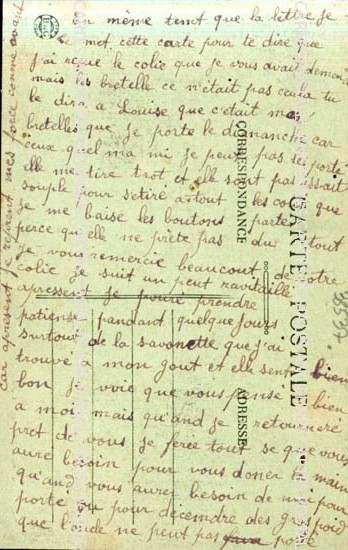 En même temt que la lettre je
te met cette carte pour te dire que
j'ai reçue le colie que je vous avait demender
mais les bretelle ce n'était pas ceula tu
le dira a Louise que c'était mes
bretelles que je porte le dimanche car
ceux quel ma mi je peut pas les porté
elle me tire trot et elle sont pas assait
souple pour s'étiré a tout les cou que
je me baise les boutons parte
perce qu'elle ne prète pas du tout
Je vous remercie beaucout de votre
colie je suit un peut ravitaillé
apressent je pouré prendre
patiense pandant quelque jours
surtout de la savonette que j'ai
trouvé a mon gout et elle sent bien
bon je voie que vous pensé bien
a moi mais qu'and je retourneré
pret de vous je feré tout se que vous
auré besoin pour vous doner la main
qu'and vous aurez besoin de moi pour
porté ou pour décendre des gros poid
que l'oncle ne peut pas porté
car apresent je reprent mes force comme avant
CORRESPONDANCE
CARTE POSTALE
ADRESSE